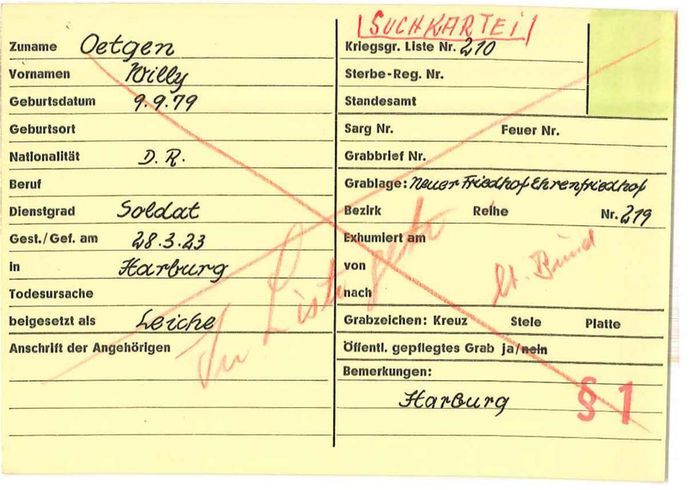 SUCHKARTEI
Zuname Oetgen
Vornamen Willy
Geburtsdatum 9.9.79
Geburtsort
Nationalität D.R.
Beruf
Dienstgrad Soldat
Gest./Gef. am 28.3.23
in Harburg
Todesursache
beigesetzt als Leiche
Anschrift der Angehörigen
Kriegsgr. Liste Nr. 210
Sterbe-Reg. Nr.
Standesamt
Sarg Nr. Feuer Nr.
Grabbrief Nr.
Grablage: Neuer Friedhof Ehrenfriedhof
Bezirk Reihe Nr. 219
Exhumiert am
von
nach
Grabzeichen: Kreuz Stele Platte
Öffentl. gepflegtes Grab ja/nein
Bemerkungen:
Harburg
§ 1
In Liste